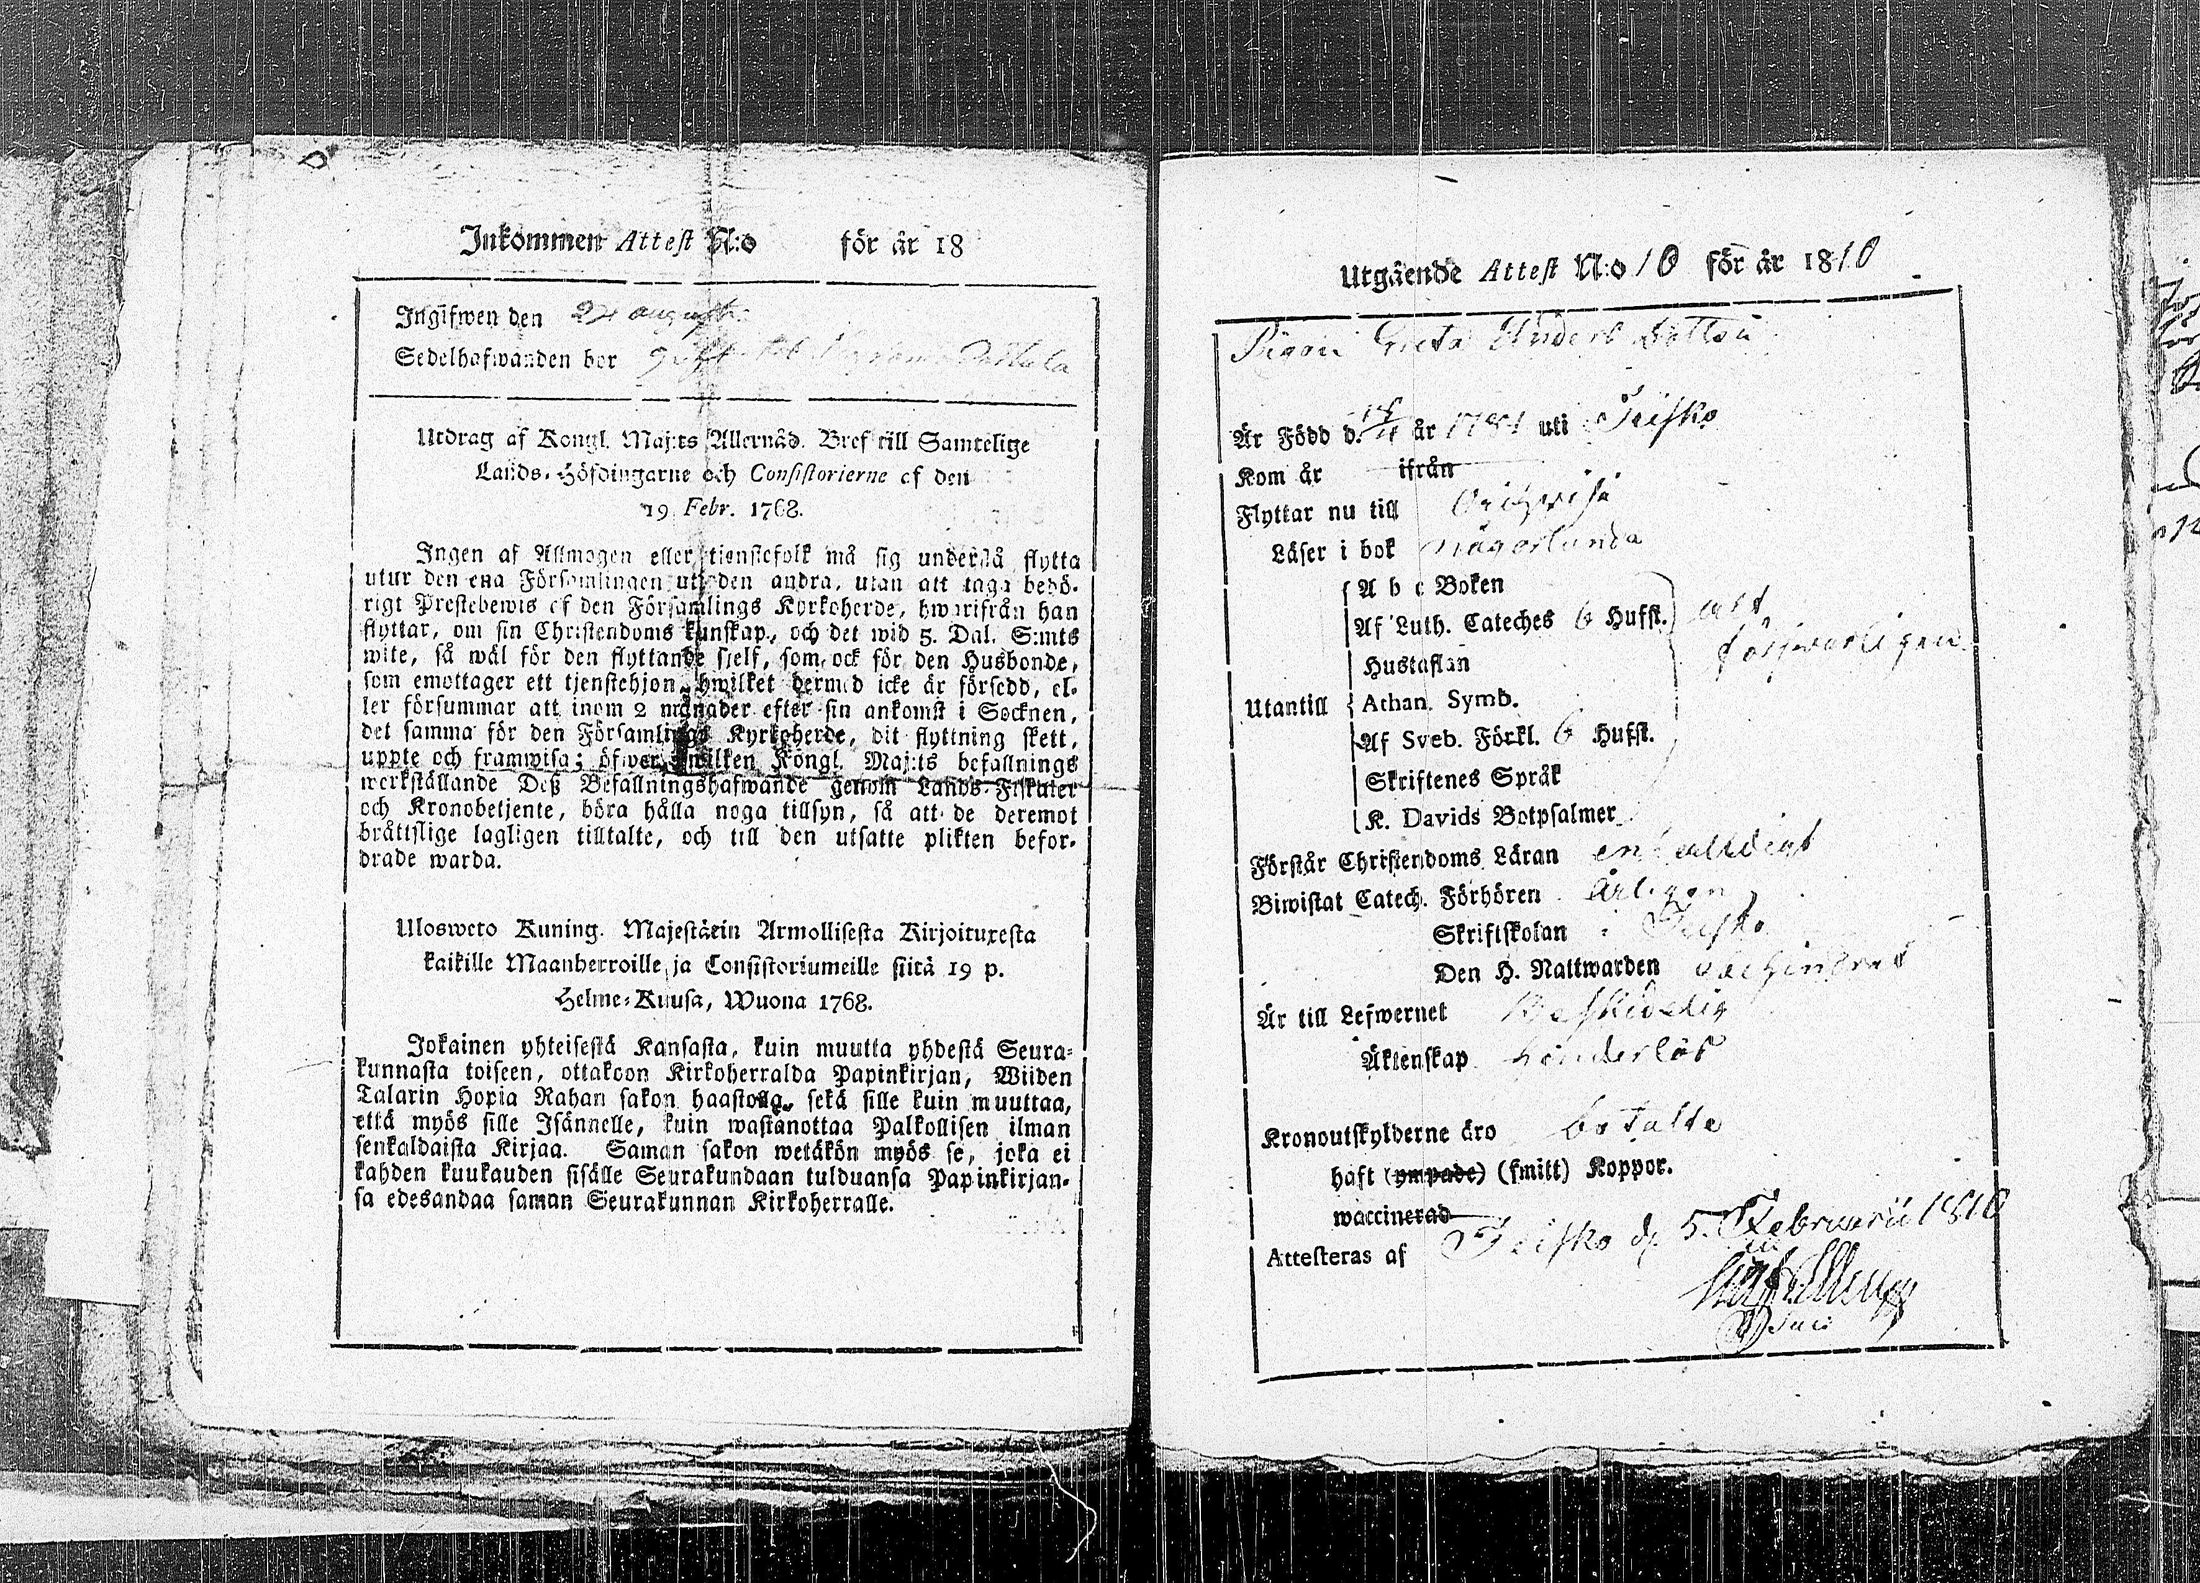 Inkommen Attest N:o för år 18
Ingifwen den 24 augusti
Sedelhafwanden bor
Utdrag af Kongl. Maj:ts Allernåd. Bref till Samtelige
Lands-Höfdingarne och Consistorierne af den
19 Febr. 1768.
Ingen af Allmogen eller tienstefolk må sig understå flytta
utur den ena Församlingen uti den andra, utan att taga behö-
rigt Prestebewis af den Församlings Kyrkoherde, hwarifrån han
flyttar, om sin Christendoms kunskap, och det wid 5. Dal. S:mts
wite, så wäl för den flyttande sjelf, som ock för den Husbonde,
som emottager ett tjenstehjon, hwilket dermed icke är försedd, el-
ler försummar att inom 2 månader efter sin ankomst i Socknen,
det samma för den Församlings Kyrkoherde, dit flyttning skett,
uppte och framwisa; öfwer hwilken Kongl. Maj:ts befallnings
werkställande Deß Befallningshafwande genom Lands-Fiskaler
och Kronobetjente, böra hålla noga tillsyn, så att de deremot
bråttslige lagligen tilltalte, och till den utsatte plikten befor-
drade warda.
Ulosweto Kuning. Majestätin Armollisesta Kirjoituxesta
kaikille Maanherroille ja Consistoriumeille siitä 19 p.
Helme-Kuusa, Wuona 1768.
Jokainen yhteisestä Kansasta, kuin muutta yhdestä Seura-
kunnasta toiseen, ottakoon Kirkoherralda Papinkirjan, Wiiden
Talarin Hopia Rahan sakon haastolla, sekä sille kuin muuttaa,
että myös sille Isännelle, kuin wastanottaa Palkollisen ilman
senkaldaista Kirjaa. Saman sakon wetäkön myös se, joka ei
kahden kuukauden sisälle Seurakundaan tulduansa Papinkirjan-
sa edesandaa saman Seurakunnan Kirkoherralle.
Utgående Attest N:o 10 för år 1810
Pigan Greta Anders dotter
Är Född d. år 1781 uti Teisko
Kom år ifrån
Flyttar nu till Orihvesi
Läser i bok någorlunda
A b c Boken
Af Luth. Cateches 6 Hufst. allt
Hustaflan försvarligen
Utantill Athan. Symb.
Af Sveb. Förkl. 6 Hufst.
Skriftenes Språk
K. Davids Botpsalmer
Förstår Christendoms Läran enfaldigt
Biwistat Catech. Förhören årligen
Skriftskolan Teisko
Den H. Nattwarden
Är till Lefwernet beskedelig
Äktenskap hinderlös
Kronoutskylderne äro betalte
haft (ympade) (smitt) Koppor.
waccinerad
Attesteras af Teisko d. 5. Februarii 1810